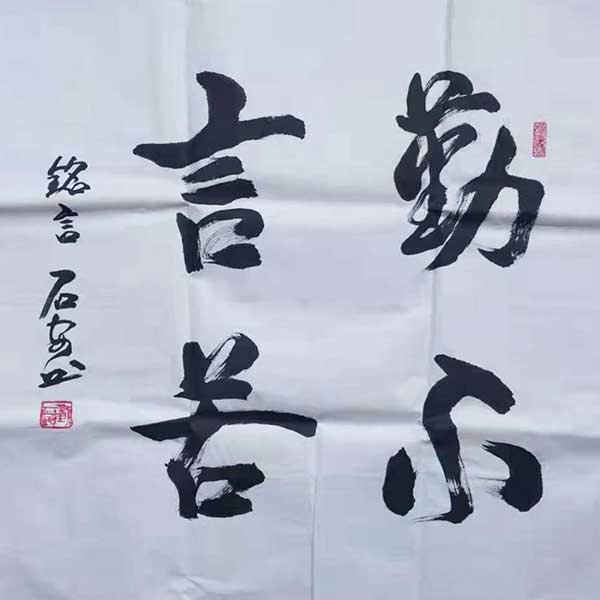 勤不
言苦
銘言 石安书